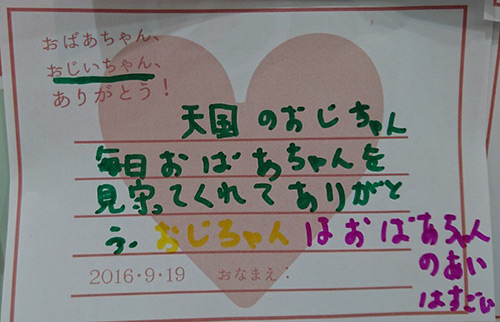 おばあちゃん、
おじいちゃん、
ありがとう！
天国のおじちゃん
毎日おばあちゃんを
見守ってくれてありがと
う。おじちゃんはおばあちゃん
のあい
はすごい
2016・9・19 おなまえ：